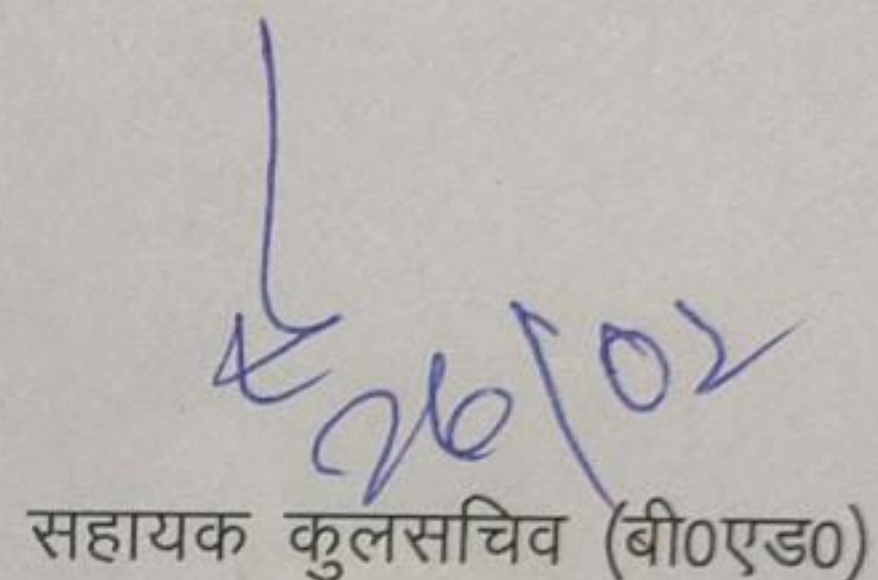 26/02
सहायक कुलसचिव (बी0एड0)